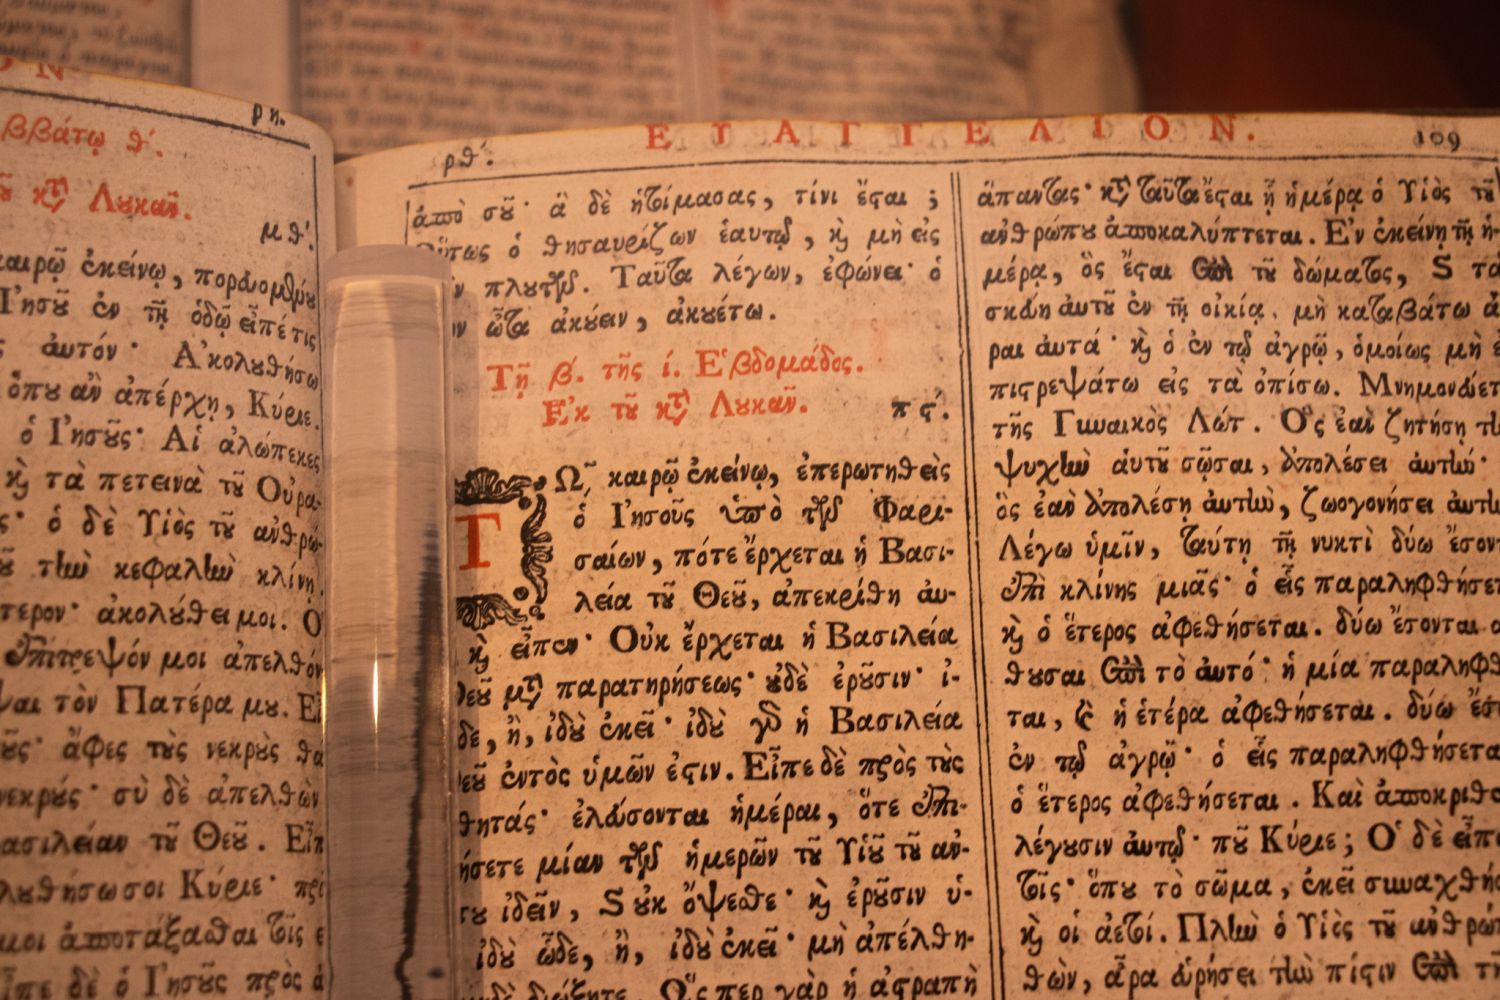 ρη.
ββάτῳ θ´.
κατὰ Λουκᾶν.
μθ´.
καιρῷ ἐκείνῳ, πορευομένου
Ἰησοῦ ἐν τῇ ὁδῷ εἶπέ τις
αὐτόν· Ἀκολουθήσω
ὅπου ἂν ἀπέρχῃ, Κύριε.
ὁ Ἰησοῦς· Αἱ ἀλώπεκες
καὶ τὰ πετεινὰ τοῦ Οὐρα-
ὁ δὲ Υἱὸς τοῦ ἀνθρώ-
τὴν κεφαλὴν κλίνῃ.
τερον· ἀκολούθει μοι. Ὁ
ἐπίτρεψόν μοι ἀπελθόν
ψαι τὸν Πατέρα μου. Εἶ
ἄφες τοὺς νεκροὺς θα
νεκρούς· σὺ δὲ ἀπελθὼν
ασιλείαν τοῦ Θεοῦ. Εἶπ
λουθήσω σοι Κύριε· πρῶ
μοι ἀποτάξασθαι τοῖς ε
ἶπε δὲ ὁ Ἰησοῦς πρὸς ἀ
ρθ´. ΕΥΑΓΓΕΛΙΟΝ. 109
ἀπὸ σοῦ· ἃ δὲ ἡτοίμασας, τίνι ἔσται;
Οὕτως ὁ θησαυρίζων ἑαυτῷ, καὶ μὴ εἰς
πλουτῶν. Ταῦτα λέγων, ἐφώνει· ὁ
ὦτα ἀκούειν, ἀκουέτω.
Τῇ β´. τῆς ί. Ἑβδομάδος.
Ἐκ τοῦ κατὰ Λουκᾶν. πς´.
ΤΩ͂ καιρῷ ἐκείνῳ, ἐπερωτηθεὶς
ὁ Ἰησοῦς ὑπὸ τῶν Φαρι-
σαίων, πότε ἔρχεται ἡ Βασι-
λεία τοῦ Θεοῦ, ἀπεκρίθη αὐ-
καὶ εἶπεν· Οὐκ ἔρχεται ἡ Βασιλεία
Θεοῦ μετὰ παρατηρήσεως· οὐδὲ ἐροῦσιν· ἰ-
δε, ἢ, ἰδοὺ ἐκεῖ· ἰδοὺ γὰρ ἡ Βασιλεία
εοῦ ἐντὸς ὑμῶν ἐστιν. Εἶπε δὲ πρὸς τοὺς
θητάς· ἐλεύσονται ἡμέραι, ὅτε ἐπι-
ήσετε μίαν τῶν ἡμερῶν τοῦ Υἱοῦ τοῦ ἀν-
ου ἰδεῖν, καὶ οὐκ ὄψεσθε· καὶ ἐροῦσιν ὑ-
ἰδοὺ ὧδε, ἢ, ἰδοὺ ἐκεῖ· μὴ ἀπέλθη-
μηδὲ διώξητε. Ὥσπερ γὰρ ἡ ἀστραπὴ
ἅπαντας· κατὰ ταῦτα ἔσται ᾗ ἡμέρᾳ ὁ Υἱὸς τοῦ
ἀνθρώπου ἀποκαλύπτεται. Ἐν ἐκείνῃ τῇ ἡ-
μέρᾳ, ὃς ἔσται ἐπὶ τοῦ δώματος, καὶ τὰ
σκεύη αὐτοῦ ἐν τῇ οἰκίᾳ. μὴ καταβάτω ἆ
ραι αὐτά· καὶ ὁ ἐν τῷ ἀγρῷ, ὁμοίως μὴ ἐ
πιστρεψάτω εἰς τὰ ὀπίσω. Μνημονεύετ
τῆς Γυναικὸς Λώτ. Ὃς ἐὰν ζητήσῃ τὴν
ψυχὴν αὐτοῦ σῶσαι, ἀπολέσει αὐτήν·
ὃς ἐὰν ἀπολέσῃ αὐτὴν, ζωογονήσει αὐτήν
Λέγω ὑμῖν, ταύτῃ τῇ νυκτὶ δύω ἔσοντ
ἐπὶ κλίνης μιᾶς· ὁ εἷς παραληφθήσετ
καὶ ὁ ἕτερος ἀφεθήσεται. δύω ἔσονται α
θουσαι ἐπὶ τὸ αὐτό· ἡ μία παραληφθ
ται, καὶ ἡ ἑτέρα ἀφεθήσεται. δύω ἔσ
ἐν τῷ ἀγρῷ· ὁ εἷς παραληφθήσετα
ὁ ἕτερος ἀφεθήσεται. Καὶ ἀποκριθε
λέγουσιν αὐτῷ· ποῦ Κύριε; Ὁ δὲ εἶπε
τοῖς· ὅπου τὸ σῶμα, ἐκεῖ συναχθήσ
καὶ οἱ ἀετοί. Πλὴν ὁ Υἱὸς τοῦ ἀνθρώπ
θὼν, ἆρα εὑρήσει τὴν πίστιν ἐπὶ τῆ